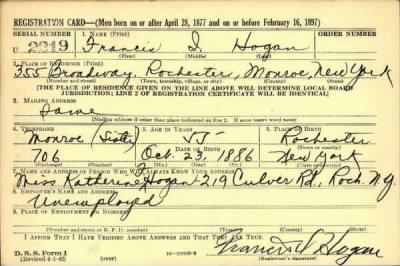 REGISTRATION CARD—(Men born on or after April 28, 1877 and on or before February 16, 1897)
SERIAL NUMBER 1. NAME (Print) ORDER NUMBER
U 2219 Francis I. Hogan
(First) (Middle) (Last)
2. PLACE OF RESIDENCE (Print)
355 Broadway, Rochester, Monroe, New York
(Number and street) (Town, township, village, or city) (County) (State)
[THE PLACE OF RESIDENCE GIVEN ON THE LINE ABOVE WILL DETERMINE LOCAL BOARD
JURISDICTION; LINE 2 OF REGISTRATION CERTIFICATE WILL BE IDENTICAL]
3. MAILING ADDRESS
Same
[Mailing address if other than place indicated on line 2. If same insert word same]
4. TELEPHONE 5. AGE IN YEARS 6. PLACE OF BIRTH
Monroe (Sister) 55 Rochester
DATE OF BIRTH (Town or county)
706 Oct. 23, 1886 New York
(Exchange) (Number) (Mo.) (Day) (Yr.) (State or country)
7. NAME AND ADDRESS OF PERSON WHO WILL ALWAYS KNOW YOUR ADDRESS
Miss Katherine Hogan - 219 Culver Rd., Roch. N.Y.
8. EMPLOYER'S NAME AND ADDRESS
Unemployed
9. PLACE OF EMPLOYMENT OR BUSINESS
(Number and street or R. F. D. number) (Town) (County) (State)
I AFFIRM THAT I HAVE VERIFIED ABOVE ANSWERS AND THAT THEY ARE TRUE.
D. S. S. Form 1 Francis I Hogan
(Revised 4-1-42) (over) (Registrant's signature)